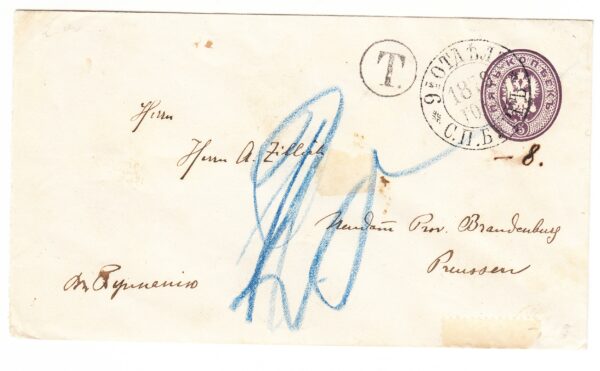 T.
9 ОТДѢЛ
187
С.П.Б.
ПЯТЬ КОПѢЕКЪ
5
8.
Herrn
Herrn A. Zillich
Neudam Prov. Brandenburg
Preussen
въ Германію